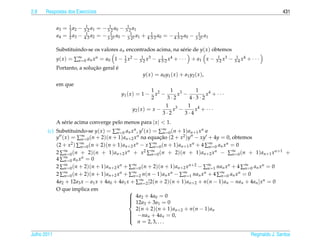 2.8 Respostas dos Exercícios 431
a₃ = ½a₂ − 1/(3·2) a₁ = −1/(3·2) a₀ − 1/(3·2) a₁
Substituindo-se os valores aₙ encontrados acima, na série de y(x) obtemos
Portanto, a solução geral é
y(x) = a₀y₁(x) + a₁y₂(x),
em que
y₁(x) = 1 − ½x² − 1/(3·2) x³ − 1/(4·3·2) x⁴ + ···
y₂(x) = x − 1/(3·2) x³ − 1/(3·4) x⁴ + ···
A série acima converge pelo menos para |x| < 1.
(c) Substituindo-se y(x) = ∑ₙ₌₀^∞ aₙxⁿ, y′(x) = ∑ₙ₌₀^∞ (n + 1)aₙ₊₁xⁿ e
y″(x) = ∑ₙ₌₀^∞ (n + 2)(n + 1)aₙ₊₂xⁿ na equação (2 + x²)y″ − xy′ + 4y = 0, obtemos
(2 + x²) ∑ₙ₌₀^∞ (n + 2)(n + 1)aₙ₊₂xⁿ − x ∑ₙ₌₀^∞ (n + 1)aₙ₊₁xⁿ + 4 ∑ₙ₌₀^∞ aₙxⁿ = 0
2 ∑ₙ₌₀^∞ (n + 2)(n + 1)aₙ₊₂xⁿ + x² ∑ₙ₌₀^∞ (n + 2)(n + 1)aₙ₊₂xⁿ − ∑ₙ₌₀^∞ (n + 1)aₙ₊₁xⁿ⁺¹ +
4 ∑ₙ₌₀^∞ aₙxⁿ = 0
2 ∑ₙ₌₀^∞ (n + 2)(n + 1)aₙ₊₂xⁿ + ∑ₙ₌₀^∞ (n + 2)(n + 1)aₙ₊₂xⁿ⁺² − ∑ₙ₌₁^∞ naₙxⁿ + 4 ∑ₙ₌₀^∞ aₙxⁿ = 0
2 ∑ₙ₌₀^∞ (n + 2)(n + 1)aₙ₊₂xⁿ + ∑ₙ₌₂^∞ n(n − 1)aₙxⁿ − ∑ₙ₌₁^∞ naₙxⁿ + 4 ∑ₙ₌₀^∞ aₙxⁿ = 0
4a₂ + 12a₃x − a₁x + 4a₀ + 4a₁x + ∑ₙ₌₂^∞ [2(n + 2)(n + 1)aₙ₊₂ + n(n − 1)aₙ − naₙ + 4aₙ]xⁿ = 0
O que implica em
4a₂ + 4a₀ = 0
12a₃ + 3a₁ = 0
2(n + 2)(n + 1)aₙ₊₂ + n(n − 1)aₙ
−naₙ + 4aₙ = 0,
n = 2, 3, . . .
Julho 2011 Reginaldo J. Santos